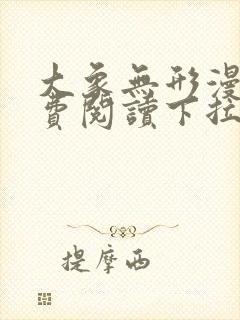 大象無形漫
費閱讀下拉
提摩西